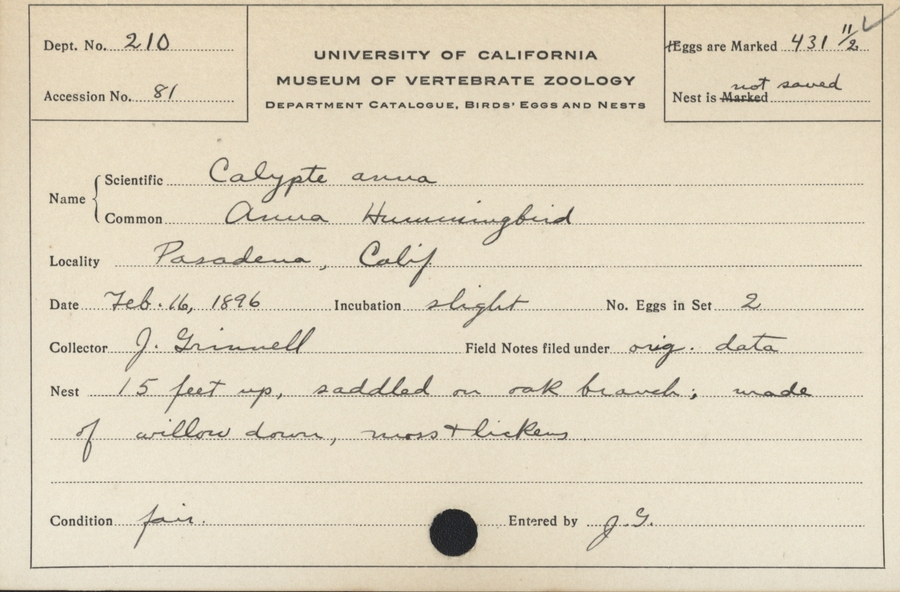 Dept. No. 210
Accession No. 81
UNIVERSITY OF CALIFORNIA
MUSEUM OF VERTEBRATE ZOOLOGY
DEPARTMENT CATALOGUE, BIRDS' EGGS AND NESTS
Eggs are Marked 431 11/2
not saved
Nest is Marked
Name
Scientific Calypte anna
Common Anna Hummingbird
Locality Pasadena, Calif
Date Feb. 16, 1896 Incubation slight No. Eggs in Set 2
Collector J. Grinnell Field Notes filed under orig. data
Nest 15 feet up, saddled on oak branch; made
of willow down, moss + lickens
Condition fair. Entered by J.G.